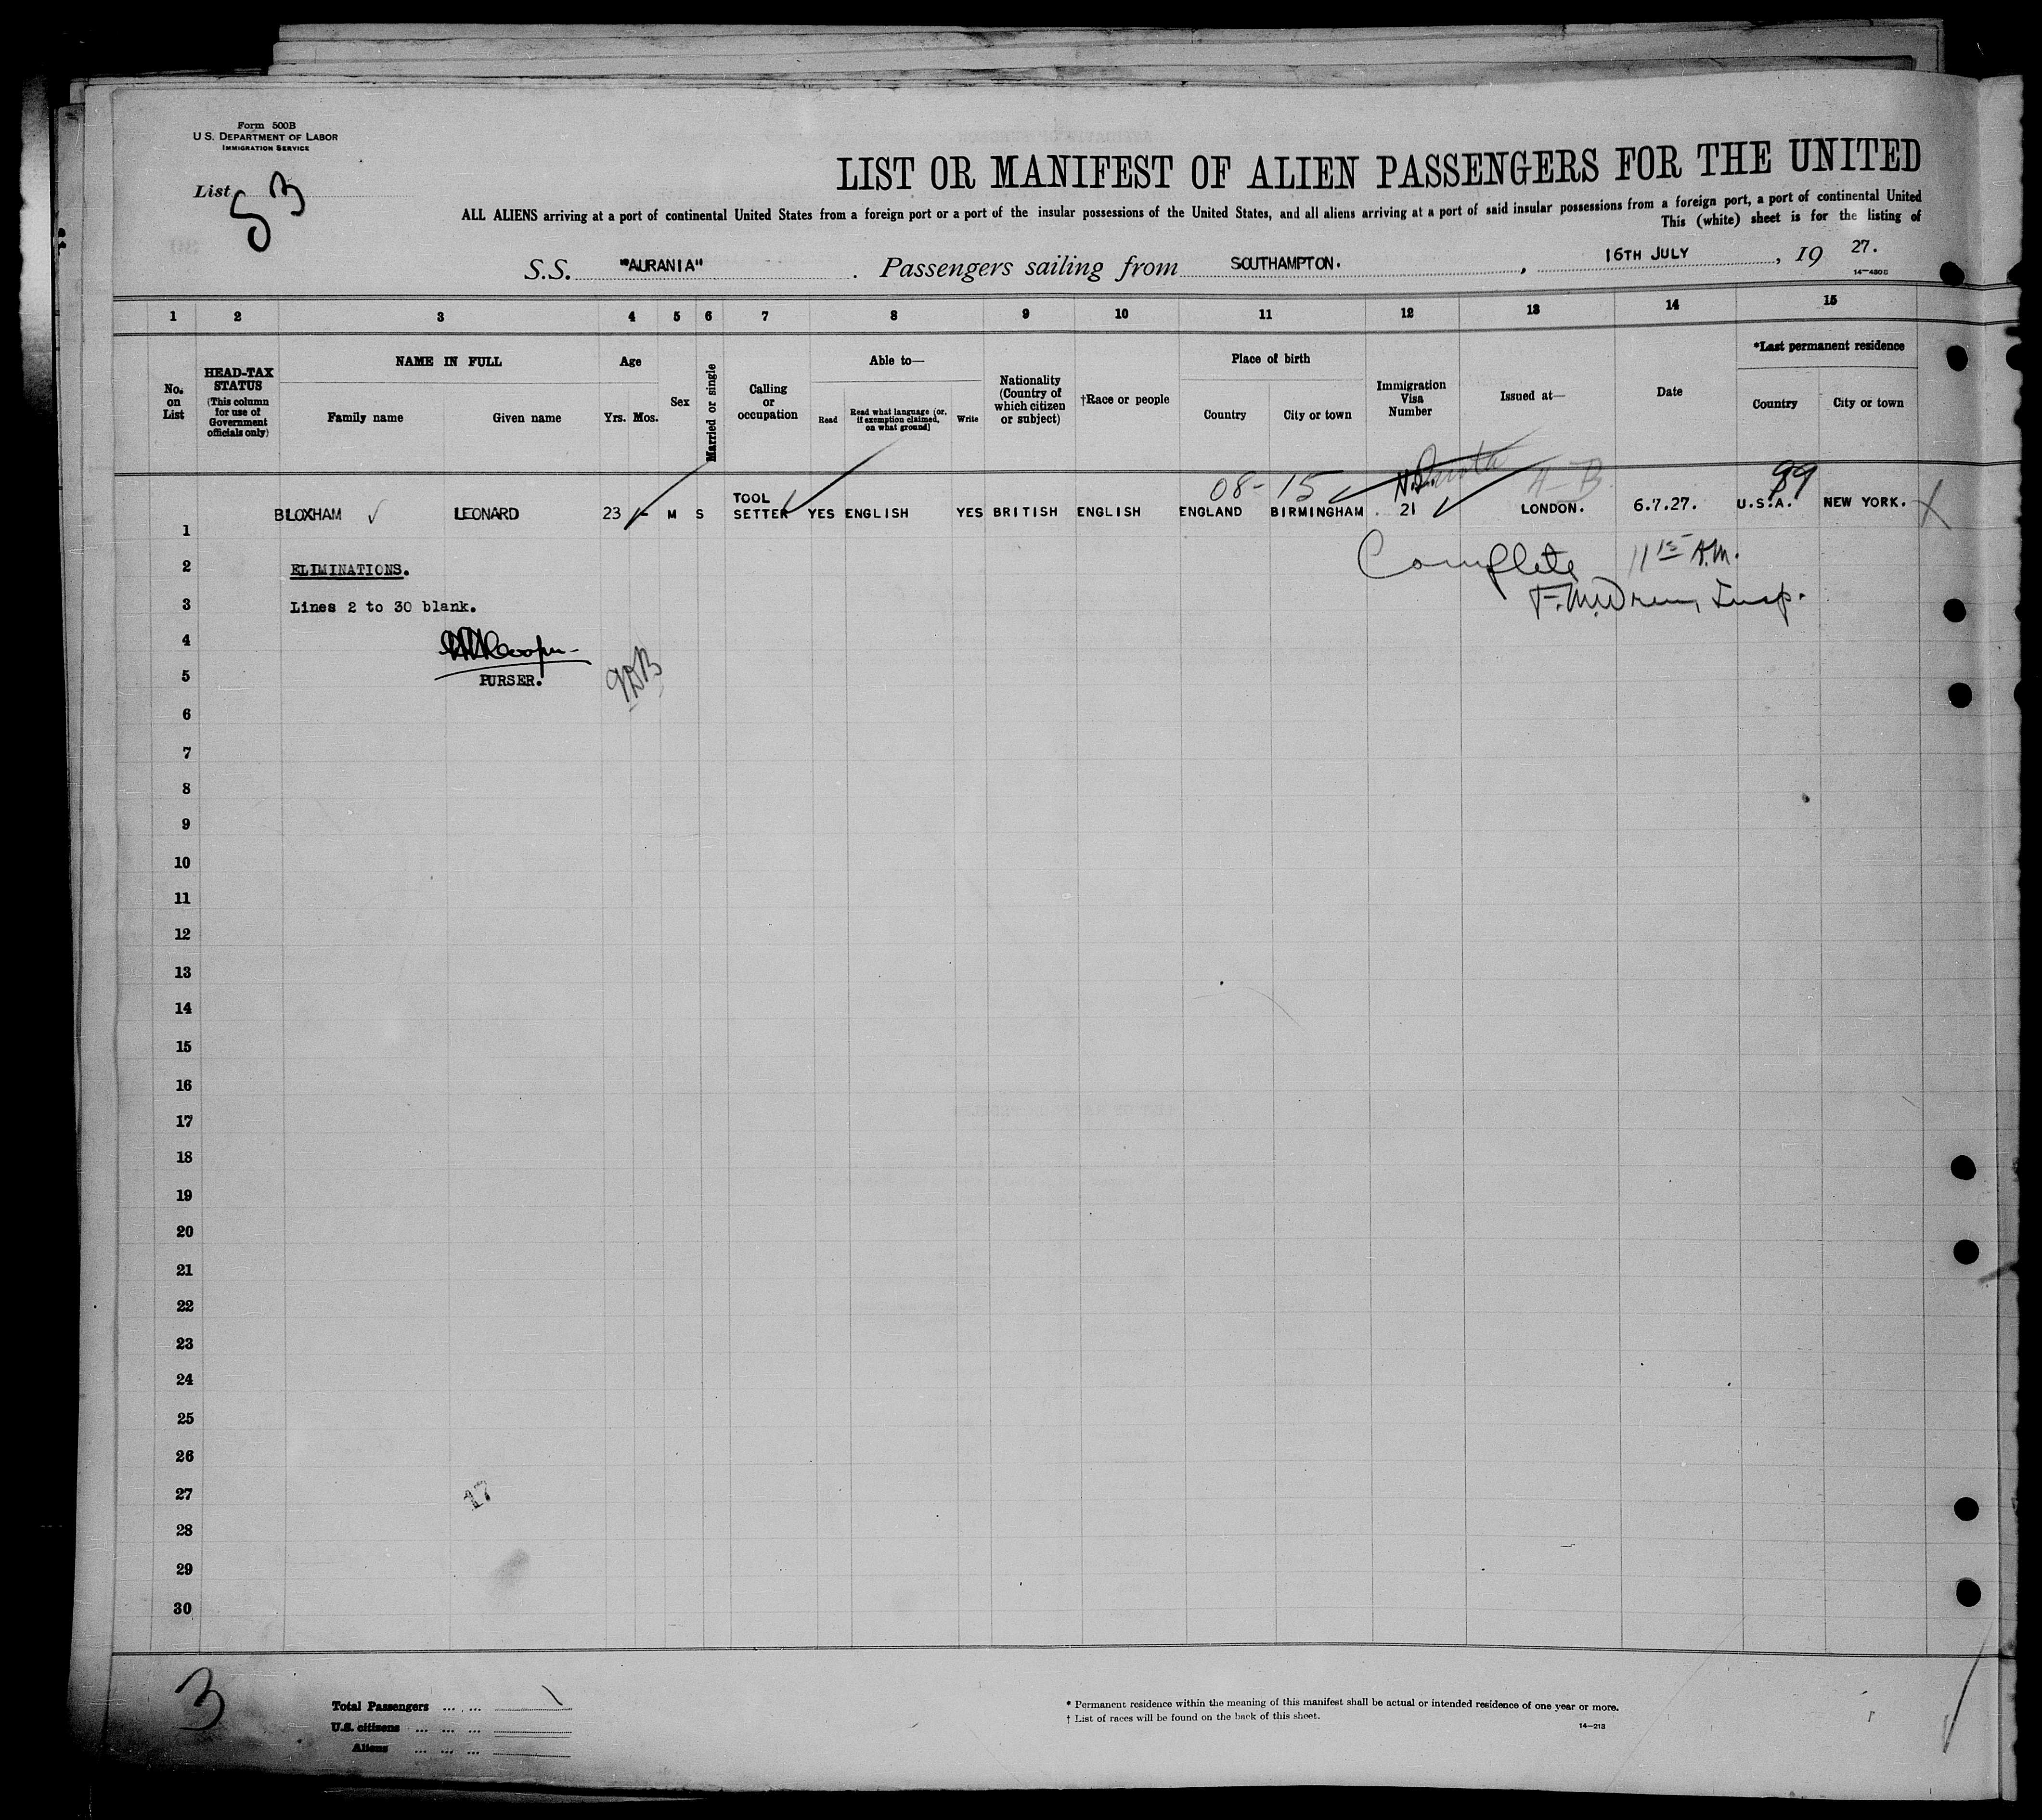 Form 500B
U.S. DEPARTMENT OF LABOR
IMMIGRATION SERVICE
List
LIST OR MANIFEST OF ALIEN PASSENGERS FOR THE UNITED
ALL ALIENS arriving at a port of continental United States from a foreign port or a port of the insular possessions of the United States, and all aliens arriving at a port of said insular possessions from a foreign port, a port of continental United
This (white) sheet is for the listing of
S.S. "AURANIA" . Passengers sailing from SOUTHAMPTON. , 16TH JULY , 19 27.
1 2 3 4 5 6 7 8 9 10 11 12 13 14 15
No. on List
HEAD-TAX STATUS
(This column for use of Government officials only)
NAME IN FULL
Family name Given name
Age
Yrs. Mos.
Sex
Married or single
Calling or occupation
Able to—
Read
Read what language [or, if exemption claimed, on what ground]
Write
Nationality (Country of which citizen or subject)
†Race or people
Place of birth
Country City or town
Immigration Visa Number
Issued at—
Date
*Last permanent residence
Country City or town
08-15 99
1 BLOXHAM LEONARD 23 - M S TOOL SETTER YES ENGLISH YES BRITISH ENGLISH ENGLAND BIRMINGHAM 21 LONDON. 6.7.27. U.S.A. NEW YORK.
Complete 11 15 A.M.
2 ELIMINATIONS.
Insp.
3 Lines 2 to 30 blank.
4
5 PURSER.
6
7
8
9
10
11
12
13
14
15
16
17
18
19
20
21
22
23
24
25
26
27
17
28
29
30
3
Total Passengers ... ...
U.S. citizens ... ... ...
Aliens ... ... ...
* Permanent residence within the meaning of this manifest shall be actual or intended residence of one year or more.
† List of races will be found on the back of this sheet.
14—213